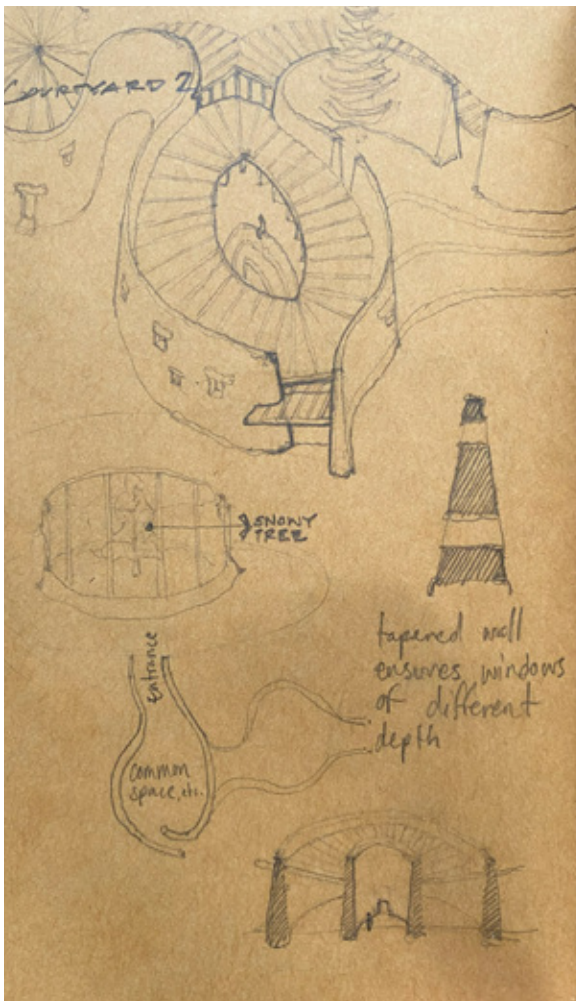 COURTYARD 2
SNOWY
TREE
tapered wall
ensures windows
of different
depth
entrance
common
space, etc.